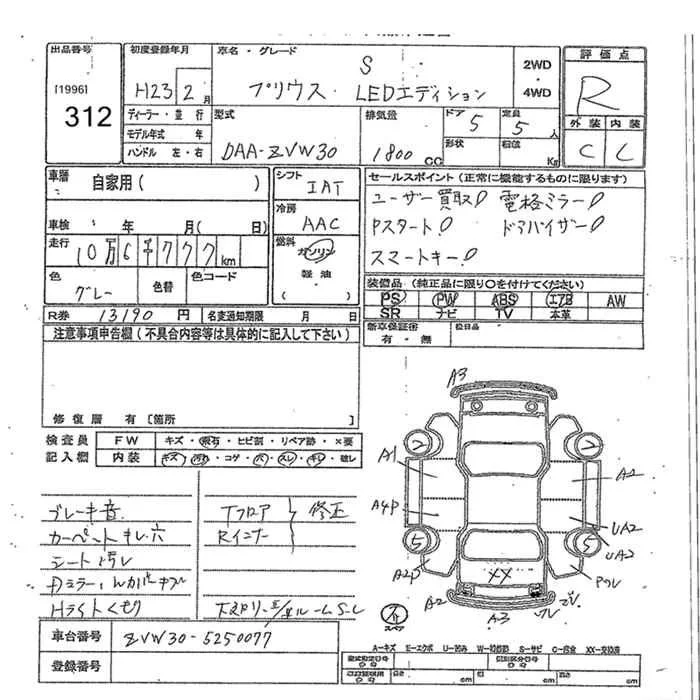 出品番号
[1996]
312
初度登録年月
H23 2月
車名・グレード
S
プリウス LEDエディション
2WD
・
4WD
評価点
R
外装 内装
C C
ディーラー・並行
モデル年式 年
ハンドル 左・右
型式
DAA-ZVW30
排気量
1800 cc
ドア
5
定員
5 人
形状
積値
Kg
車歴
自家用( )
車検 年 月( 日)
走行
10万6千777km
色
グレー
色替
色コード
シフト
IAT
冷房
AAC
燃料
ガソリン
・
軽油
( )
セールスポイント(正常に機能するものに限ります)
ユーザー買取! 電格ミラー!
Pスタート! ドアバイザー!
スマートキー!
装備品(純正品に限り○を付けてください)
PS PW ABS エアB AW
SR ナビ TV 本革
R券 13190円 名変通知期限 月 日
新車保証書
有・無
注意事項申告欄(不具合内容等は具体的に記入して下さい)
修復歴 有 [箇所 ]
検査員
記入欄
FW キズ・飛石・ヒビ割・リペア跡・×要
内装 キズ・汚れ・コゲ・穴・スレ・キレ・破レ
ブレーキ音
カーペットキレ 穴
シート汚レ
Hライトくもり
Tフロア
Rインナー
修正
A3
2
2
A1
A2
A4P
UA2
UA2
5
5
A2P
XX
A2
A3
スペア
A-キズ E-エクボ U-凹み W-補修跡 S-サビ C-腐食 XX-交換済
車台番号
ZVW30-5250077
登録番号
型式指定番号
類別区分番号
長さ cm
幅 cm
高さ cm